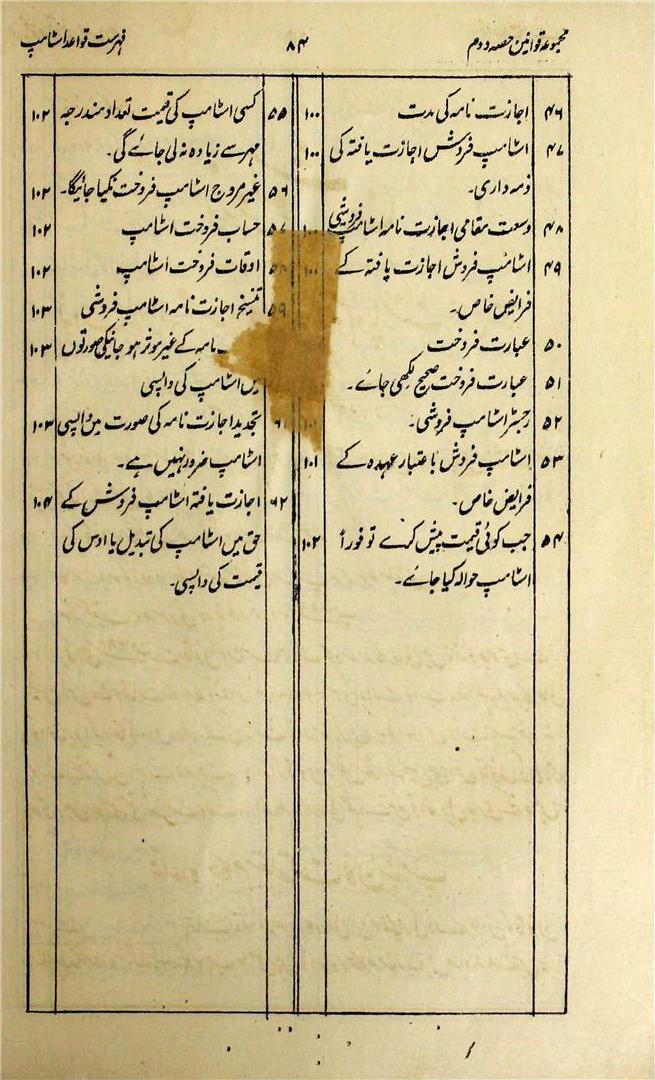 مجموعہ قوانین حصہ دوم ۸۴ فہرست قواعد اسٹامپ
۴۶ اجازت نامہ کی مدت ۱۰۰
۴۷ اسٹامپ فروش اجازت یافتہ کی ۱۰۰
ذمہ داری۔
۴۸ وسعت مقامی اجازت نامہ اسٹامپ فروشی ۱۰۰
۴۹ اسٹامپ فروش اجازت یافتہ کے ۱۰۰
فرایض خاص۔
۵۰ عبارت فروخت
۵۱ عبارت فروخت صحیح لکھی جائے۔
۵۲ رجسٹر اسٹامپ فروشی۔
۵۳ اسٹامپ فروش باعتبار عہدہ کے ۱۰۱
فرایض خاص۔
۵۴ جب کوئی قیمت پیش کرے تو فوراً ۱۰۲
اسٹامپ حوالہ کیا جائے۔
۵۵ کسی اسٹامپ کی قیمت تعداد مندرجہ ۱۰۲
مہر سے زیادہ نہ لی جائے گی۔
۵۶ غیر مروج اسٹامپ فروخت نکیا جائیگا۔ ۱۰۲
۵۷ حساب فروخت اسٹامپ ۱۰۲
۵۸ اوقات فروخت اسٹامپ ۱۰۲
۵۹ تنسیخ اجازت نامہ اسٹامپ فروشی ۱۰۳
نامہ کے غیر موثر ہو جانیکی صورتوں ۱۰۳
میں اسٹامپ کی واپسی
۶۱ تجدید اجازت نامہ کی صورت میں واپسی ۱۰۳
اسٹامپ ضرور نہیں ہے۔
۶۲ اجازت یافتہ اسٹامپ فروش کے ۱۰۴
حق میں اسٹامپ کی تبدیل یا اوس کی
قیمت کی واپسی۔